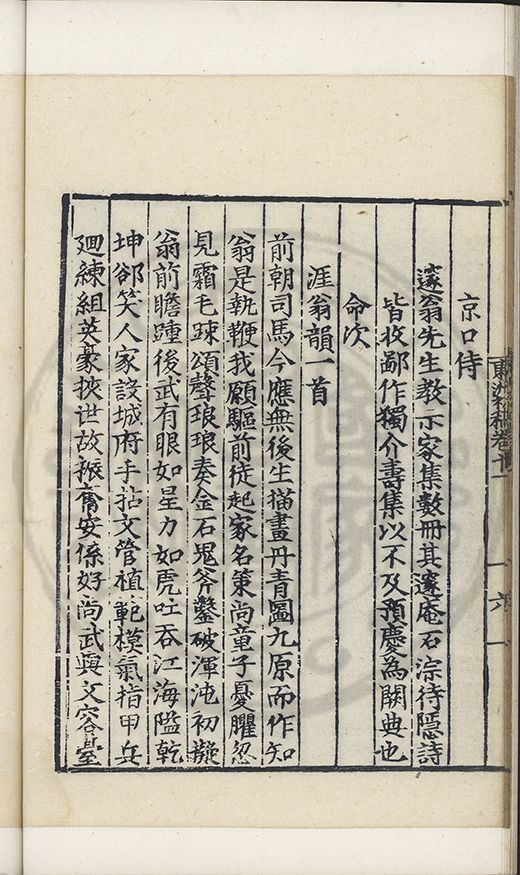 京口侍
邃翁先生教示家集數冊其邃庵石淙待隱詩
皆收鄙作獨介壽集以不及預慶為闕典也
命次
涯翁韻一首
前朝司馬今應無後生描畫丹青圖九原而作知
翁是執鞭我願驅前徒起家名第尚童子憂臞忽
見霜毛疎頌聲琅琅奏金石鬼斧鑿破渾沌初凝
翁前瞻踵後武有眼如星力如虎吐吞江海隘乾
坤卻笑人家設城府手拈文管植範模氣指甲兵
廻練組英豪挾世故振奮安係好尚武與文容臺